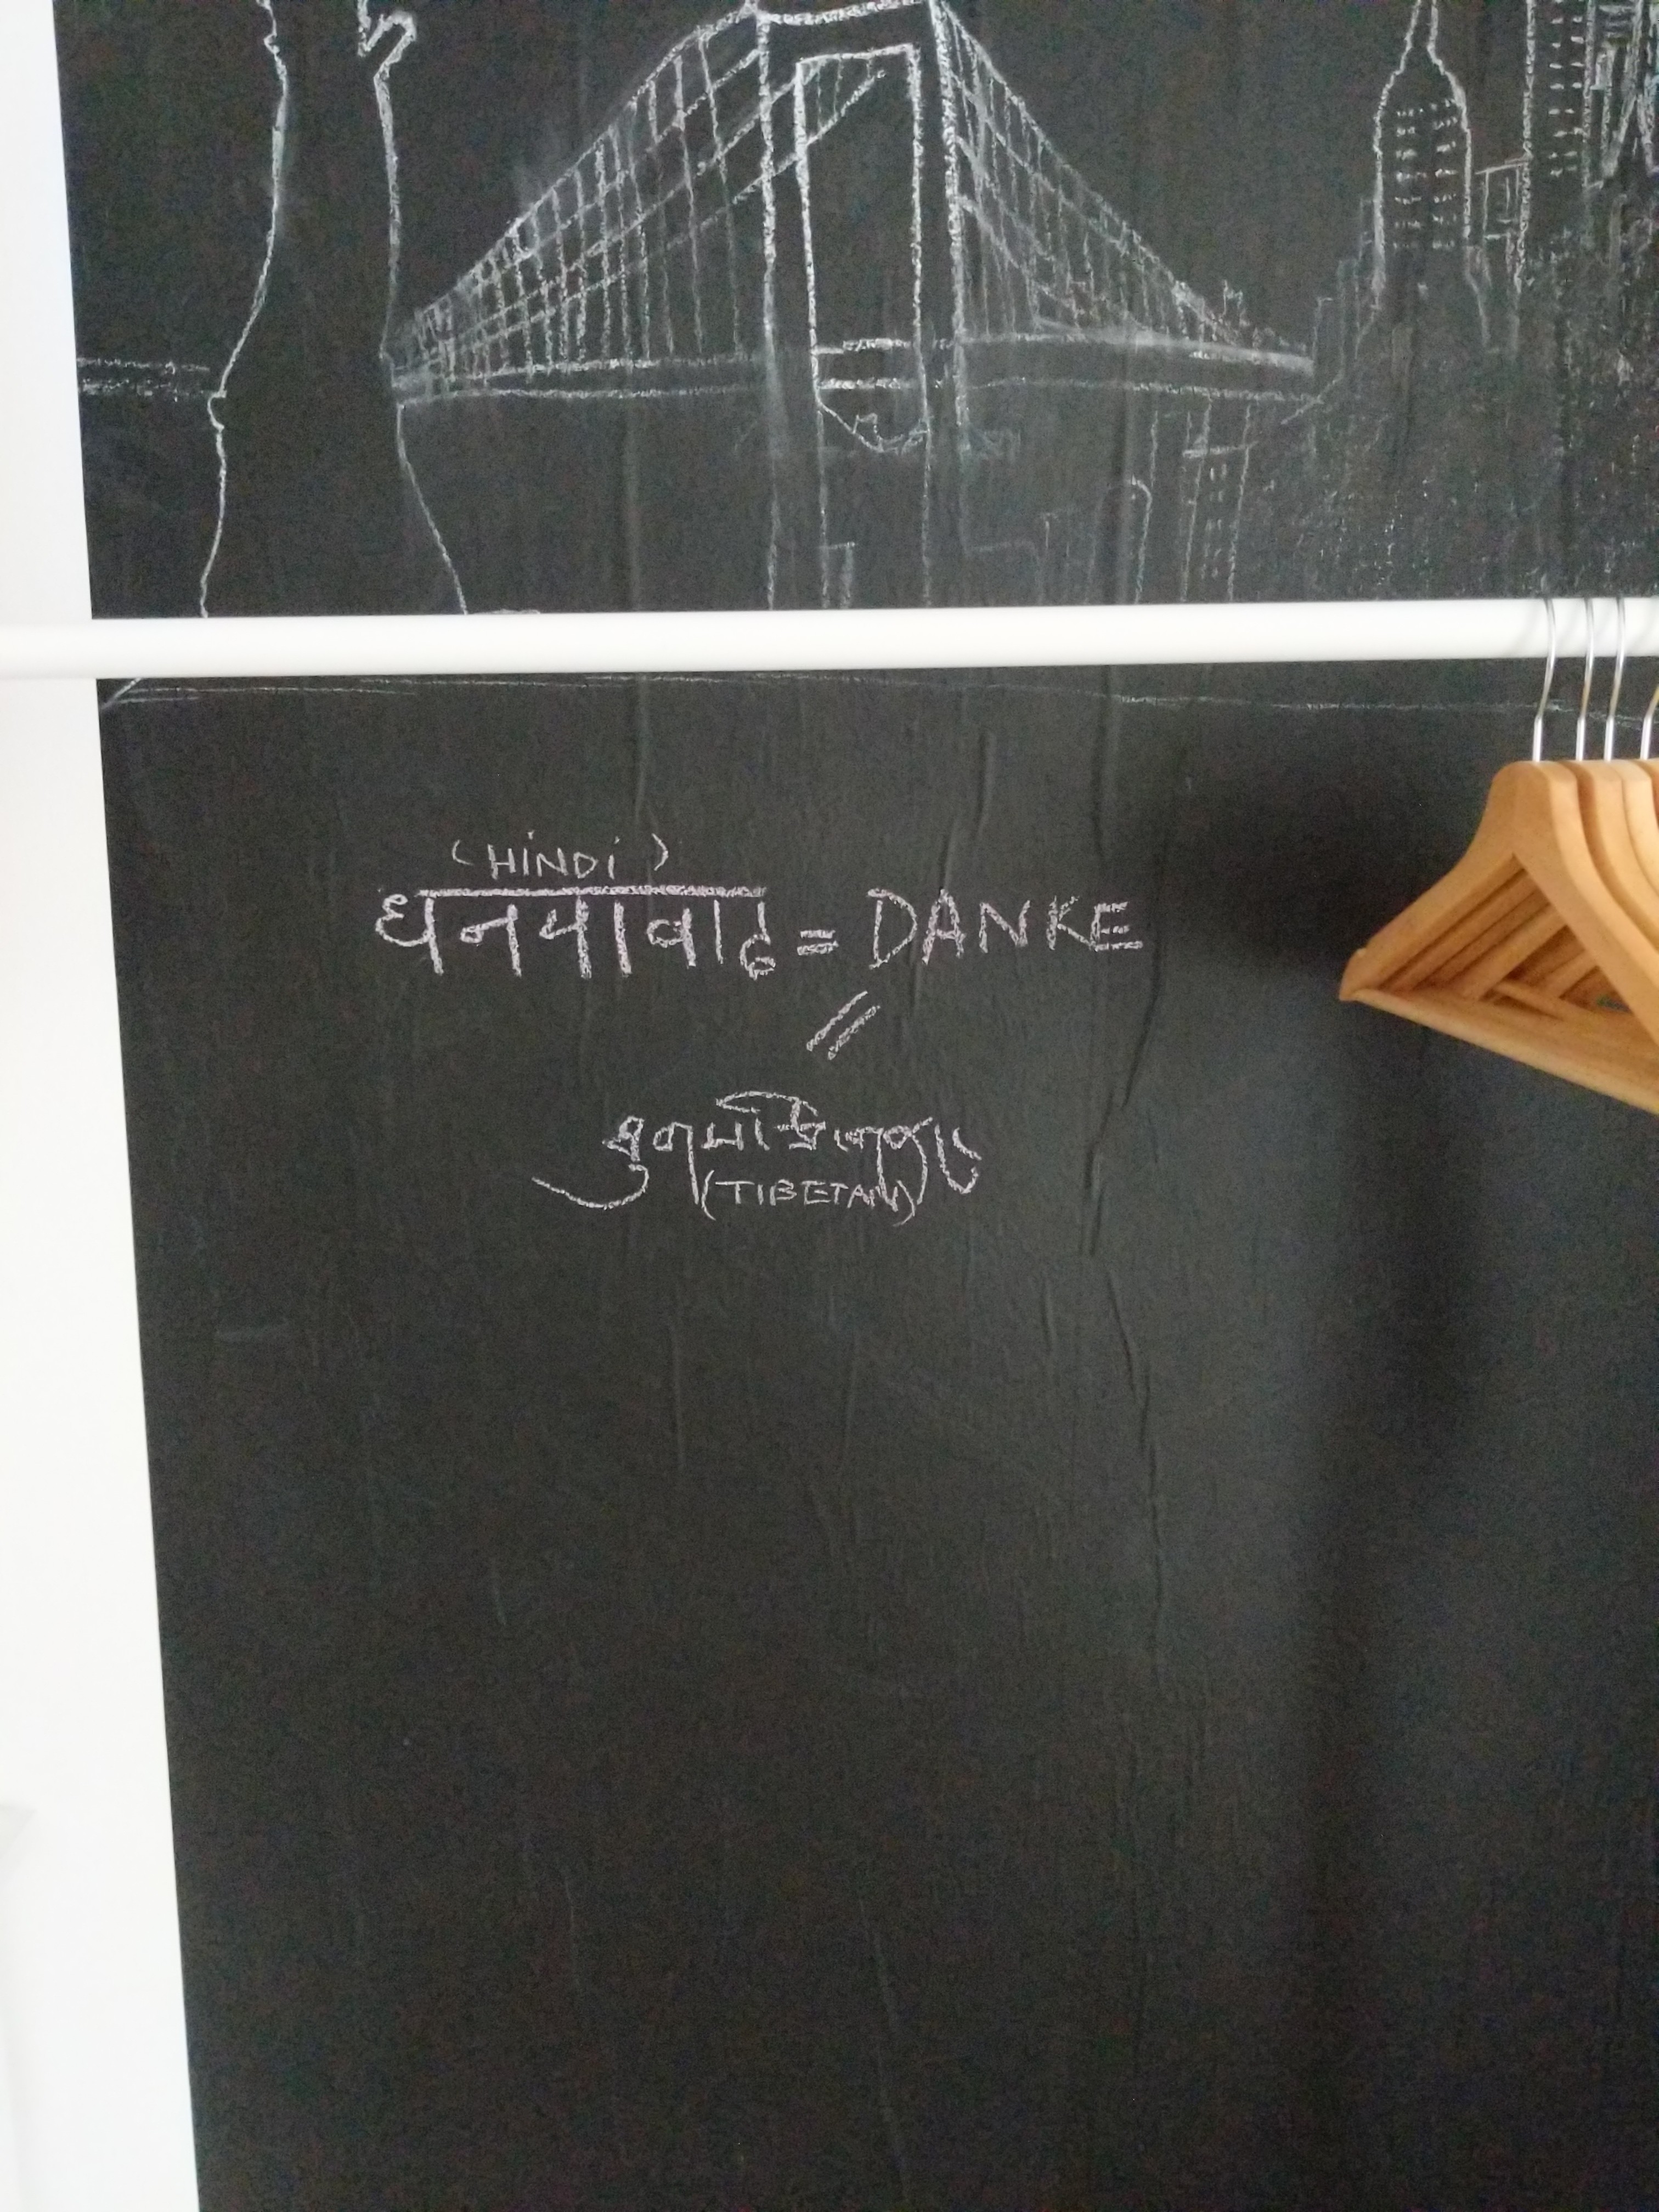 (HINDI)
धनयावाद = DANKE
//
(TIBETAN)